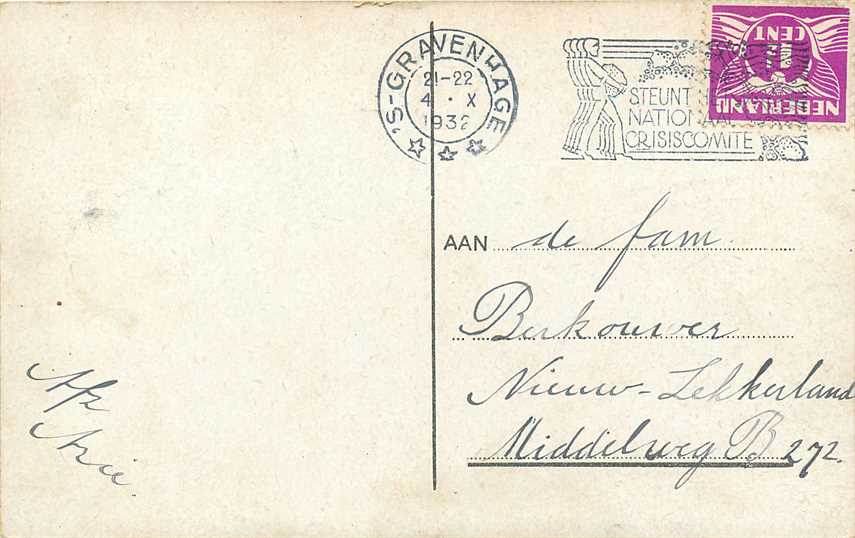 'S-GRAVENHAGE
21-22
4 · X
1932
STEUNT
NATIONAAL
CRISISCOMITE
CENT
NEDERLAND
AAN de fam.
Berkouwer
Nieuw-Lekkerland
Middelweg B 272.
Afz
Arie